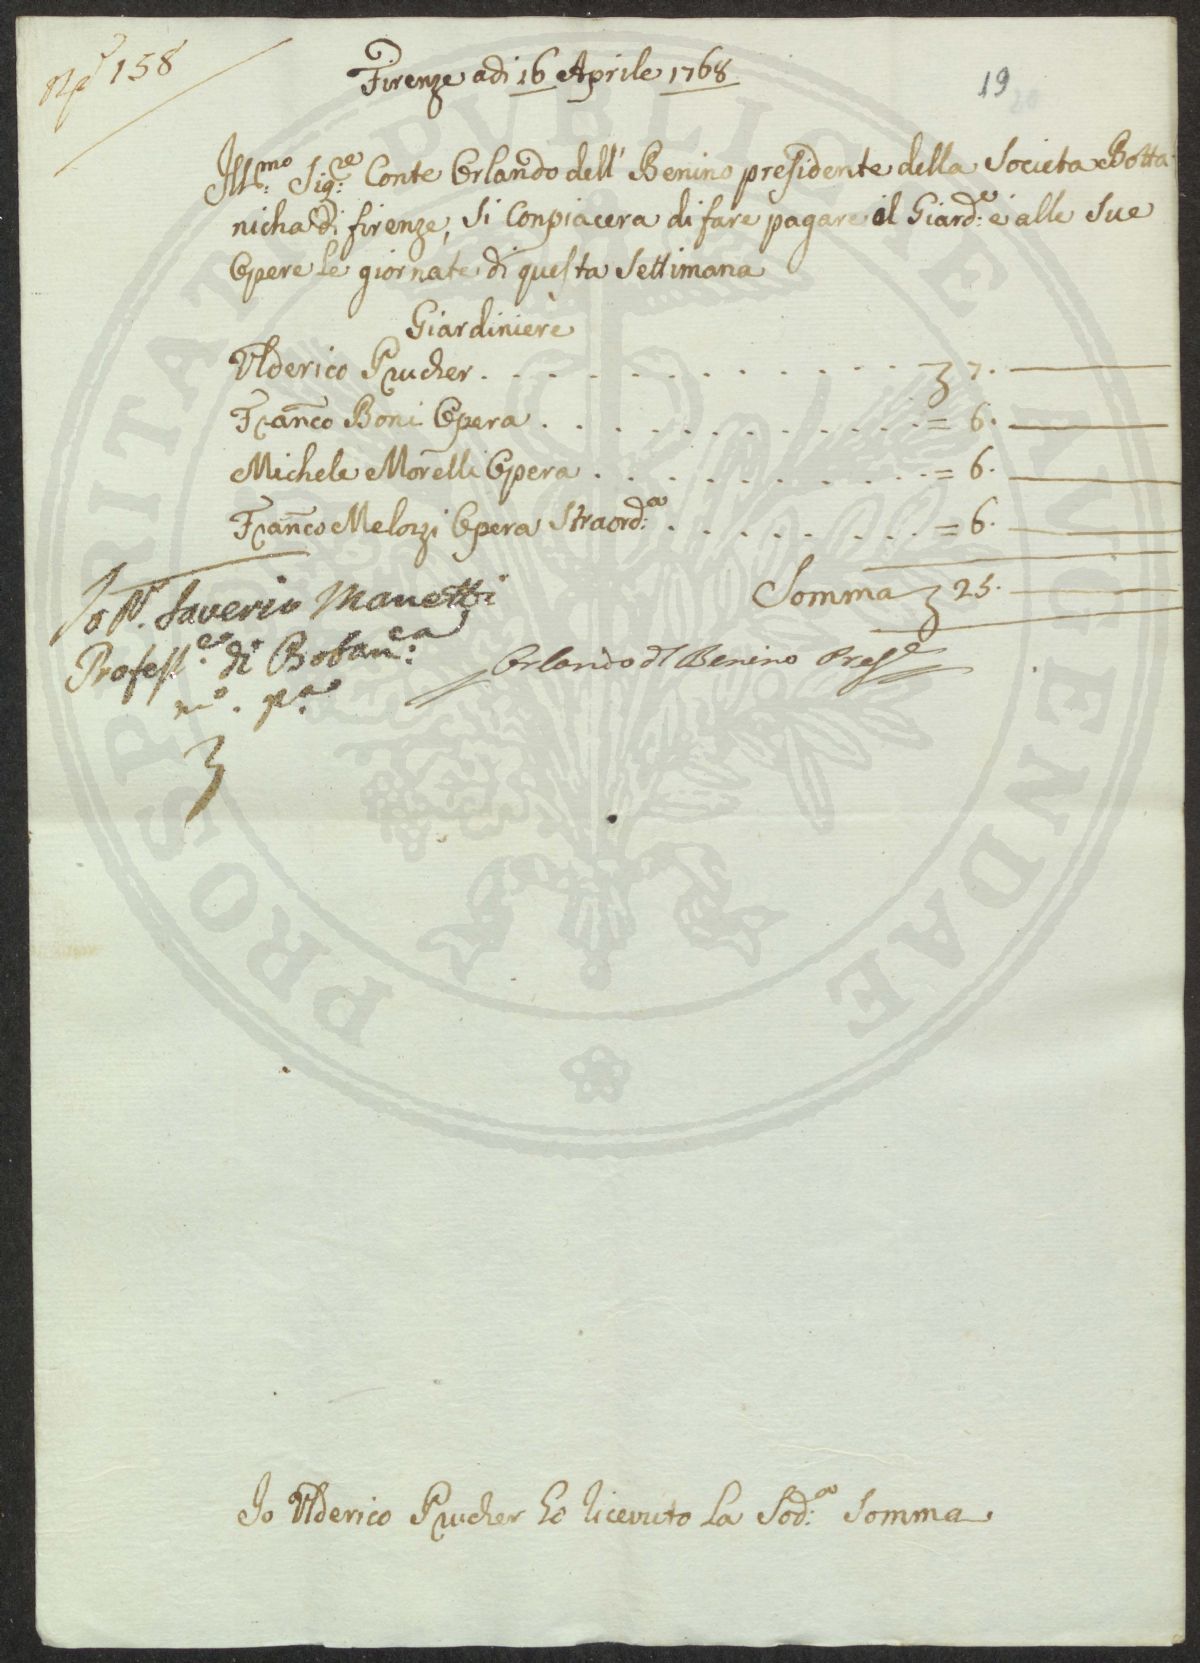 158
Firenze adi 16 Aprile 1768
19
20
Ill:mo Sig:re Conte Orlando dell' Benino presidente della Societa Botta
nicha di firenze, Si Conpiacera di fare pagare il Giard:e e alle Sue
Opere le giornate di questa Settimana
Giardiniere
Ulderico Prucher . . . . . . . . . . . . . 7. —
Franco Boni Opera . . . . . . . . . . . = 6. —
Michele Morelli Opera . . . . . . . . . = 6. —
Franco Melozzi Opera Straord:a . . . . . . . = 6. —
Somma 25. —
Io D. Saverio Manetti
Profess:e di Botan:ca
m:o p:a
Orlando dl Benino Pres:e
Io Ulderico Prucher ho ricevuto la Sod:a Somma
PROSPERITATI PUBLICAE AUGENDAE